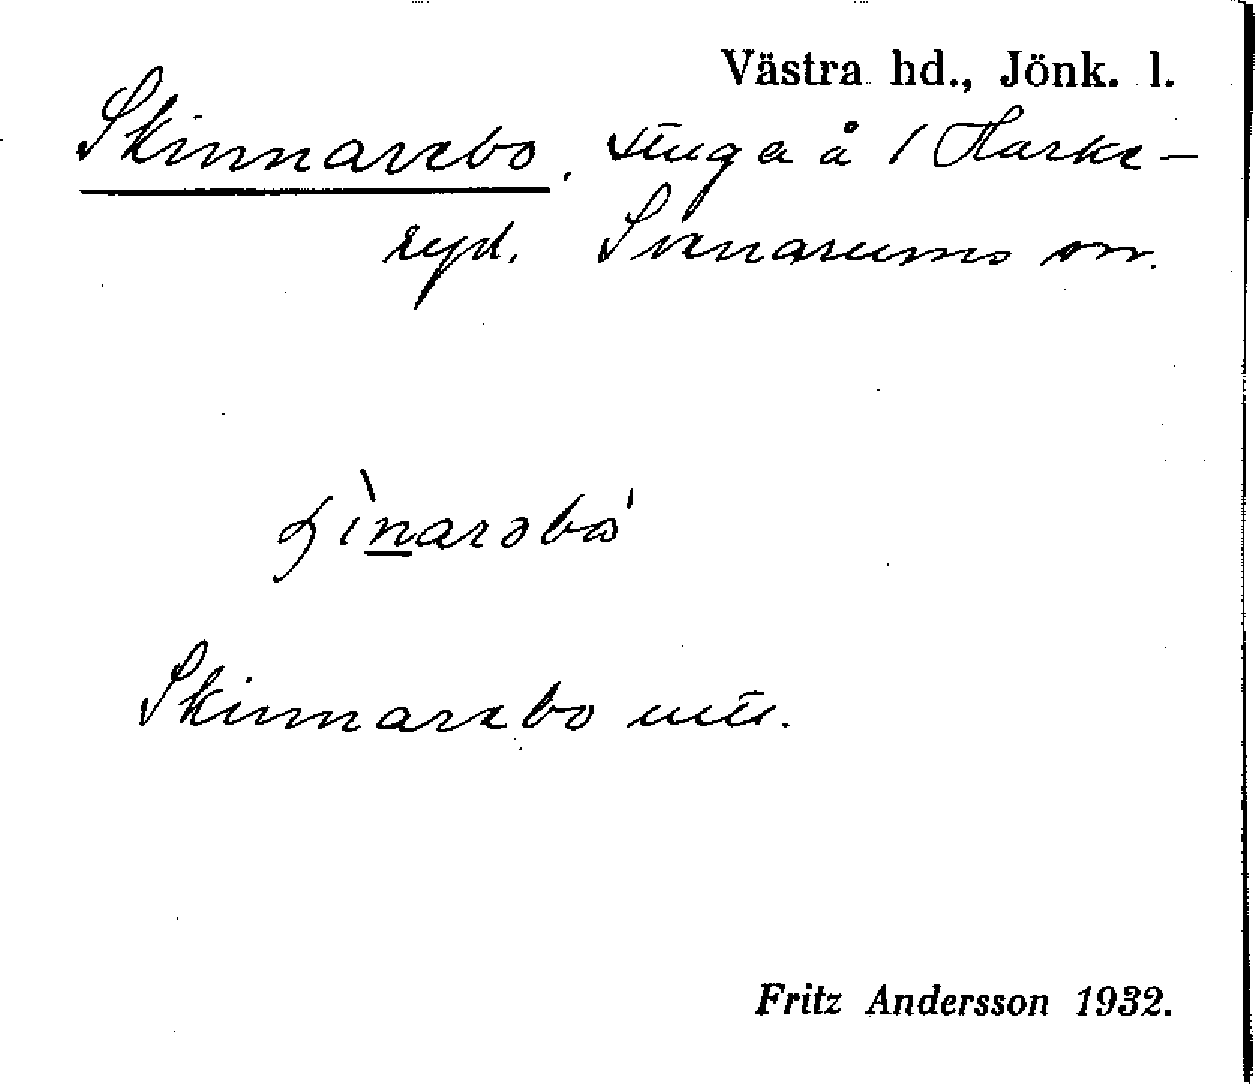 Västra hd., Jönk. l.
Skinnarebo. stuga å / Harke-
ryd. Svenarums sn.
Skinnarebo utt.
Fritz Andersson 1932.